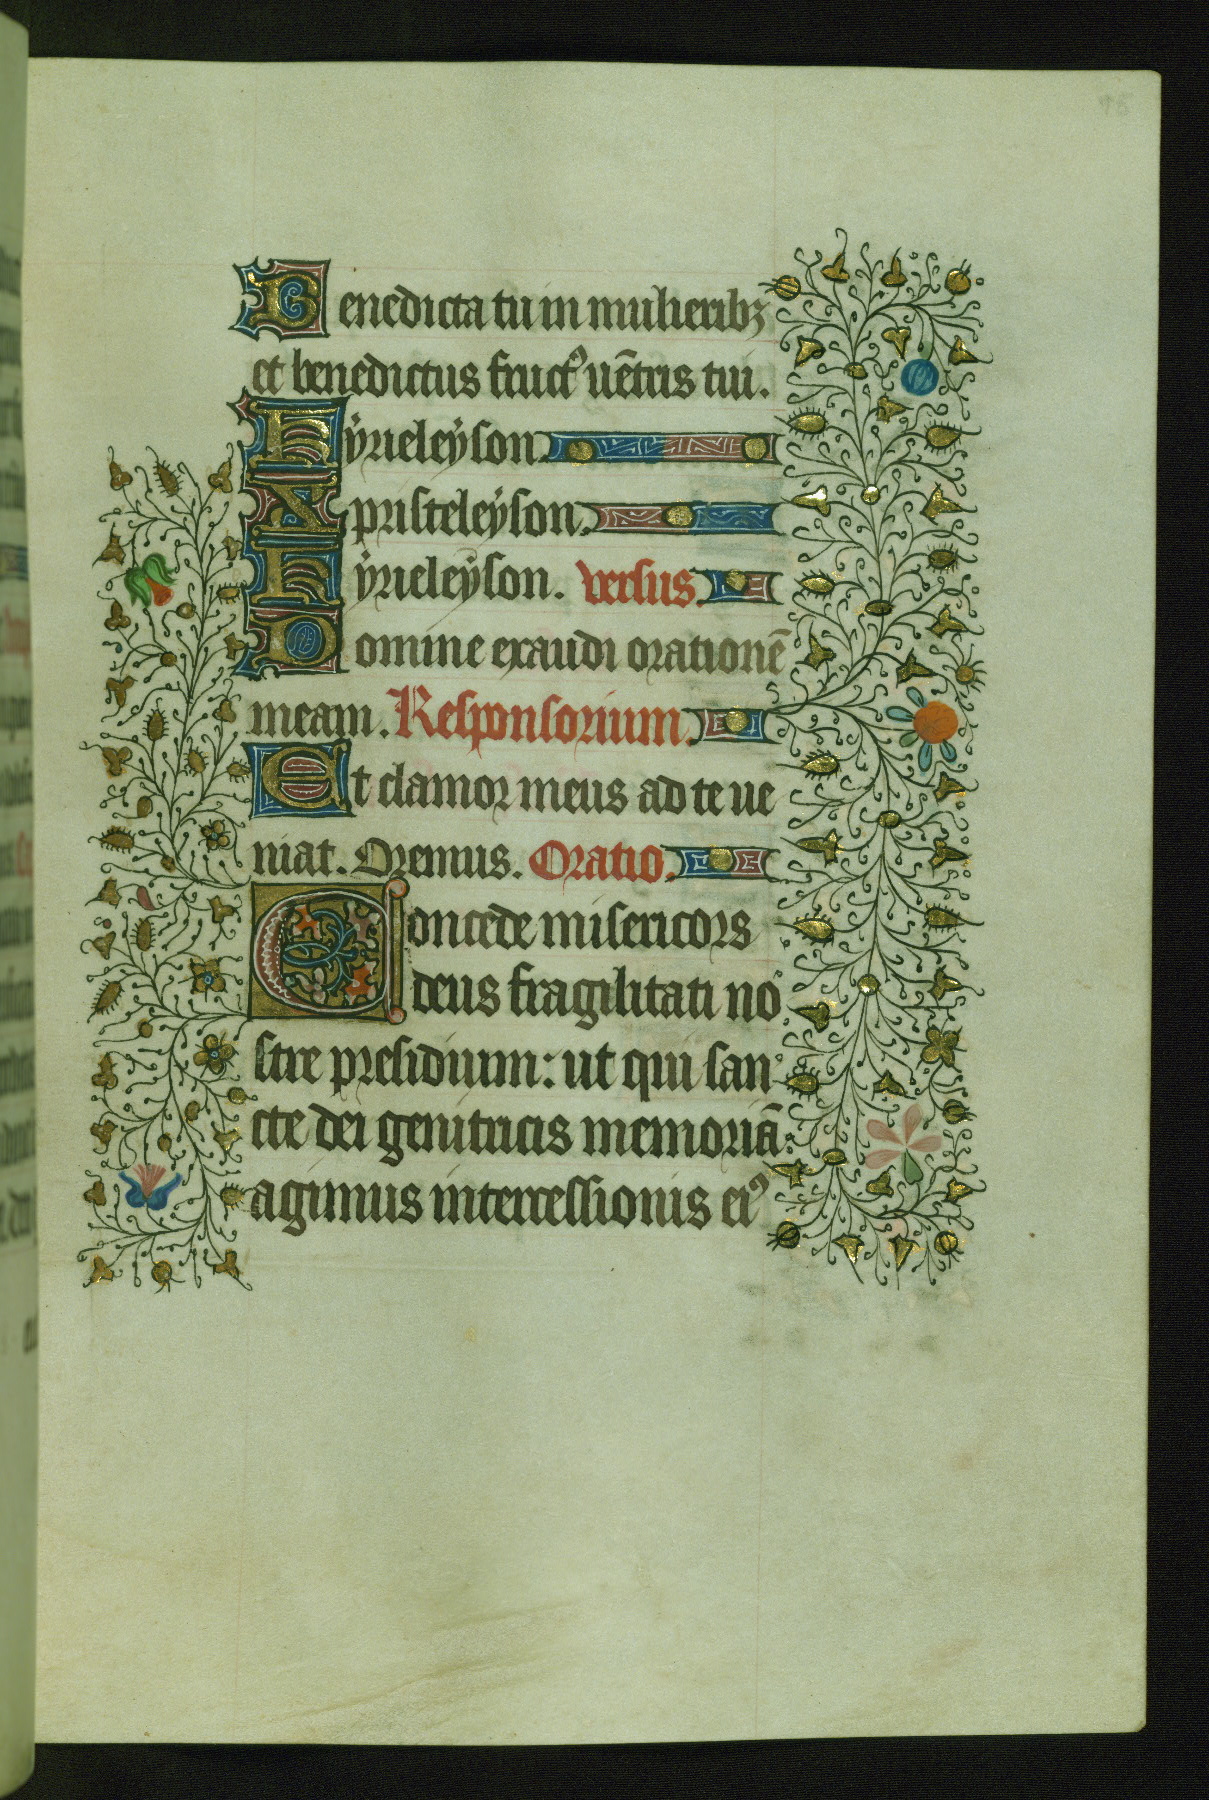 Benedicta tu in mulieribꝫ
et benedictus fructꝰ uētris tui.
Kẏrieleẏson.
Xpristeleẏson.
Kẏrieleẏson. versus.
Domine exaudi orationē
meam. Responsorium.
Et clamor meus ad te ue
niat. Oremus. Oratio.
Concede misericors
deus fragilitati no
stre presidium: ut qui san
cte dei genitricis memoriā
agimus intercessionis eiꝰ